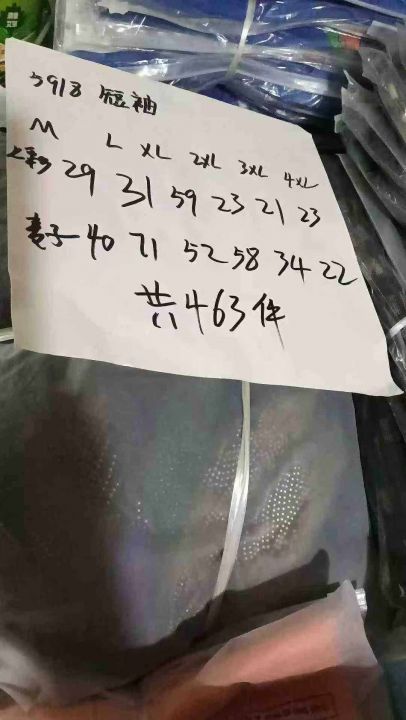 5918 短袖
M L XL 2XL 3XL 4XL
29 31 59 23 21 23
40 71 52 58 34 22
共463件